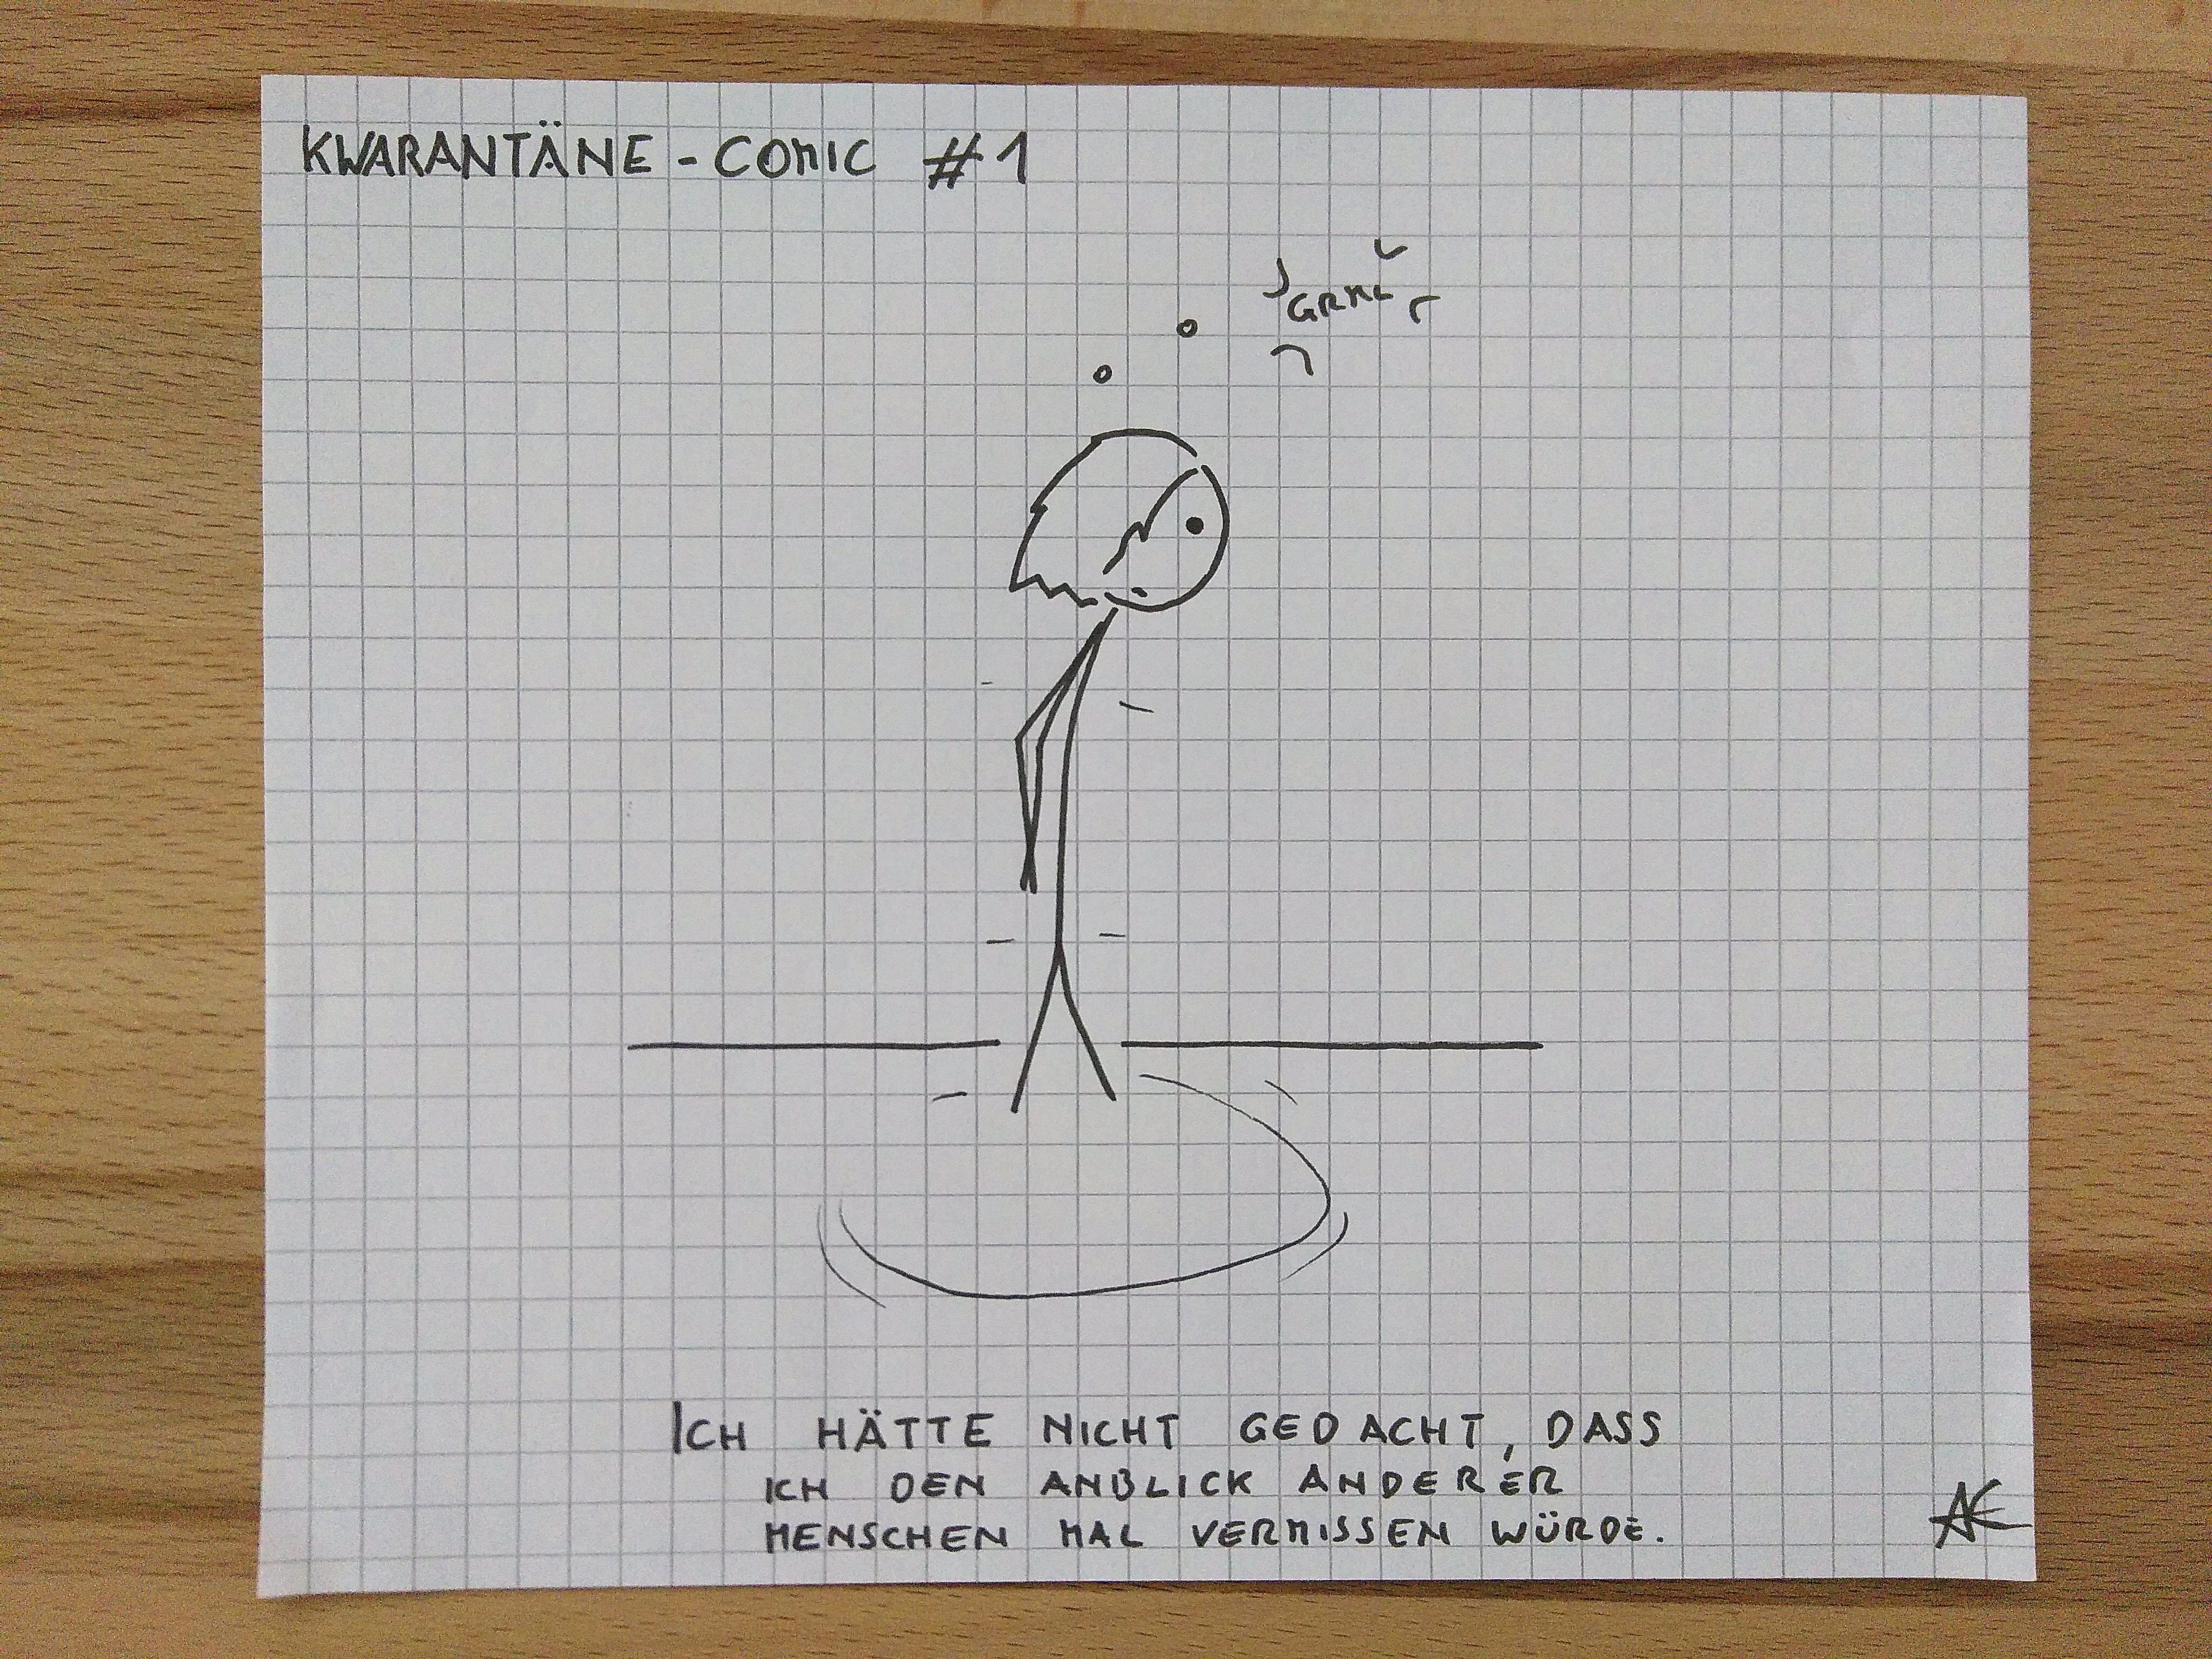 KWARANTÄNE - COMIC #1
GRML
ICH HÄTTE NICHT GEDACHT, DASS
ICH DEN ANBLICK ANDERER
MENSCHEN MAL VERMISSEN WÜRDE.